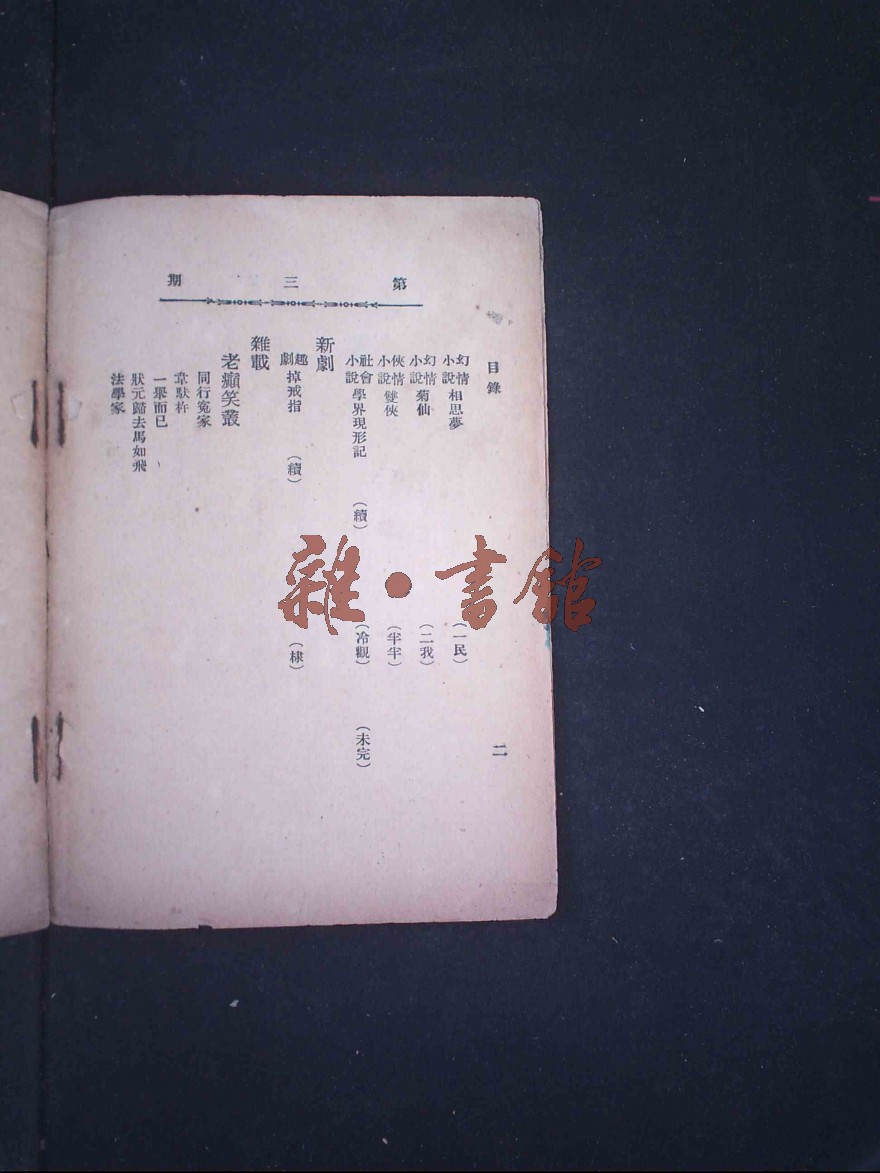 第三期
目錄 二
幻情小說 相思夢 (一民)
幻情小說 菊仙 (二我)
俠情小說 雙俠 (半半)
社會小說 學界現形記 (續) (冷觀) (未完)
新劇
趣劇 掉戒指 (續) (棣)
雜載
老癲笑叢
同行冤家
韋馱杵
一舉而已
狀元歸去馬如飛
法學家
雜·書館